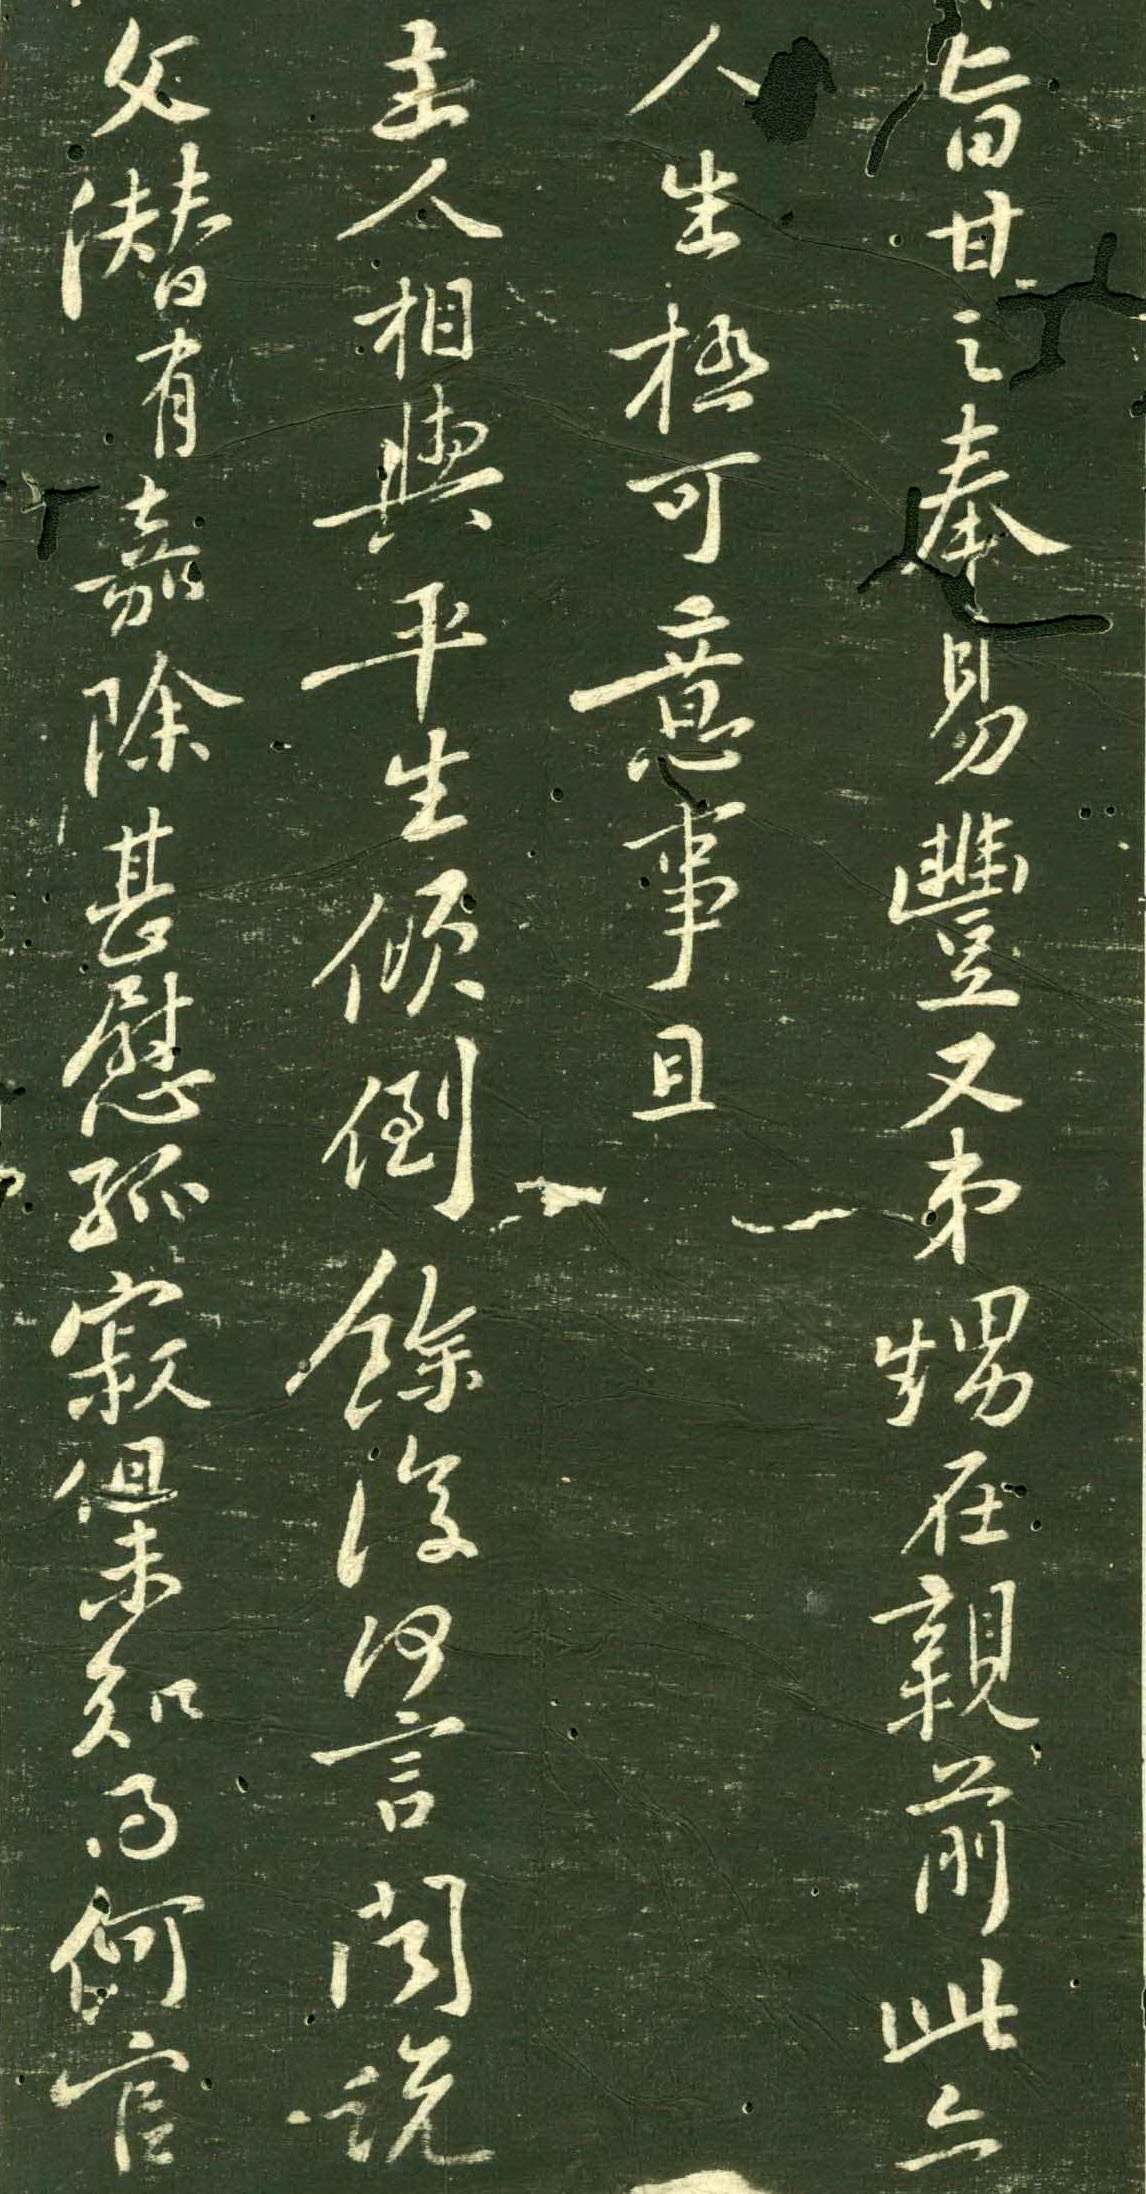 旨甘之奉易豐又弟甥在親前此亦
人生極可意事且
主人相與平生傾倒餘復何言聞說
父潛有嘉除甚慰孤寂但未知何官